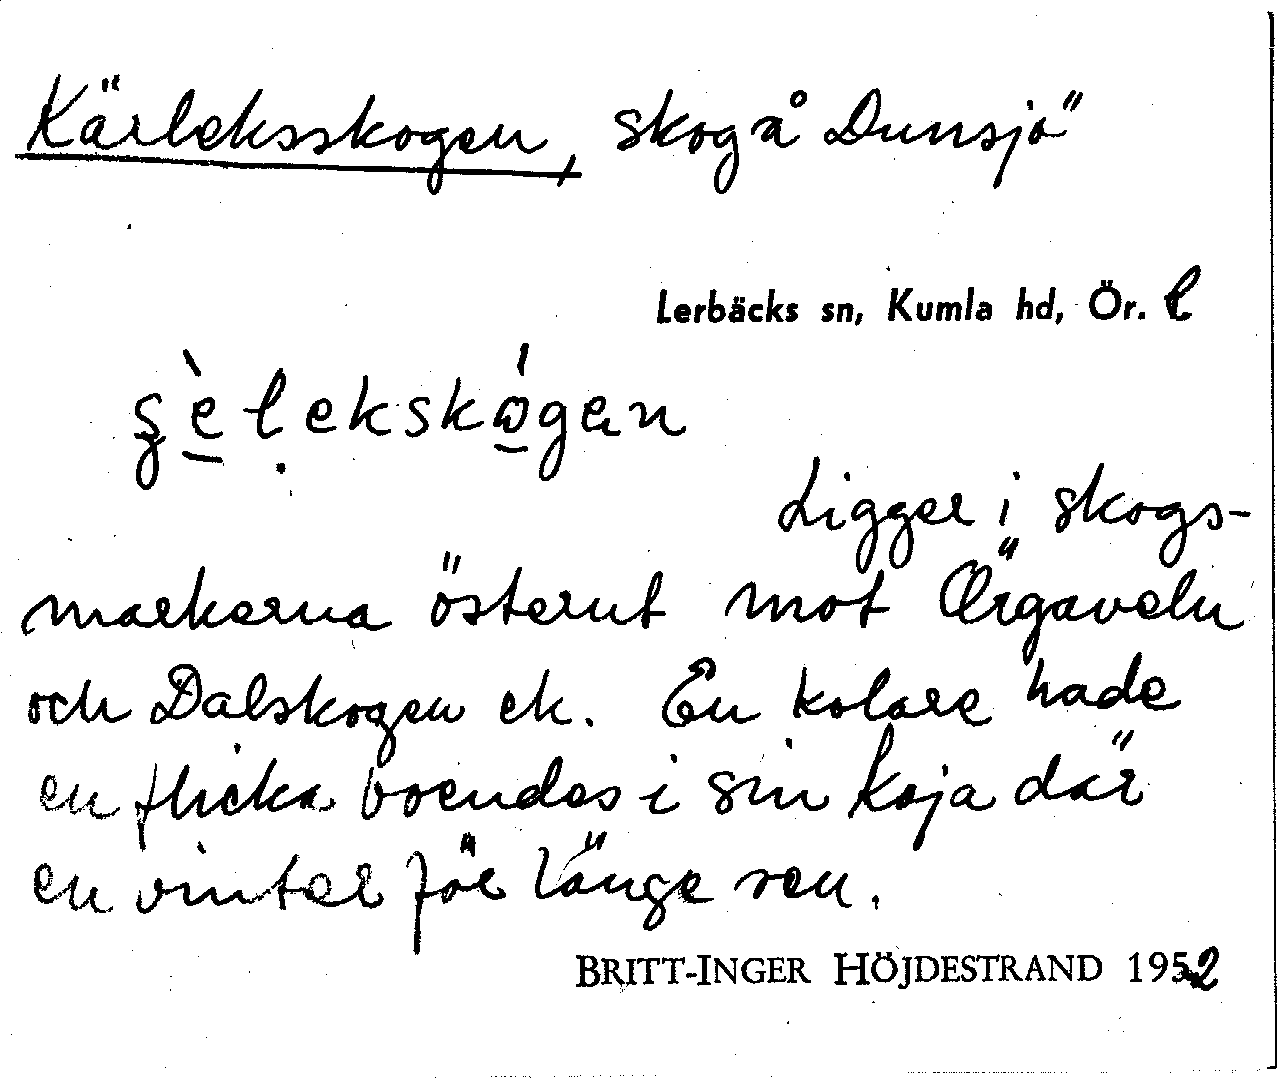 Kärleksskogen, skog å Dunsjö
Lerbäcks sn, Kumla hd, Ör. l
Ligger i skogs-
markerna österut mot Örgaveln
och Dalskogen ek. En kolare hade
en flicka boendes i sin koja där
en vinter för länge sen.
BRITT-INGER HÖJDESTRAND 1952